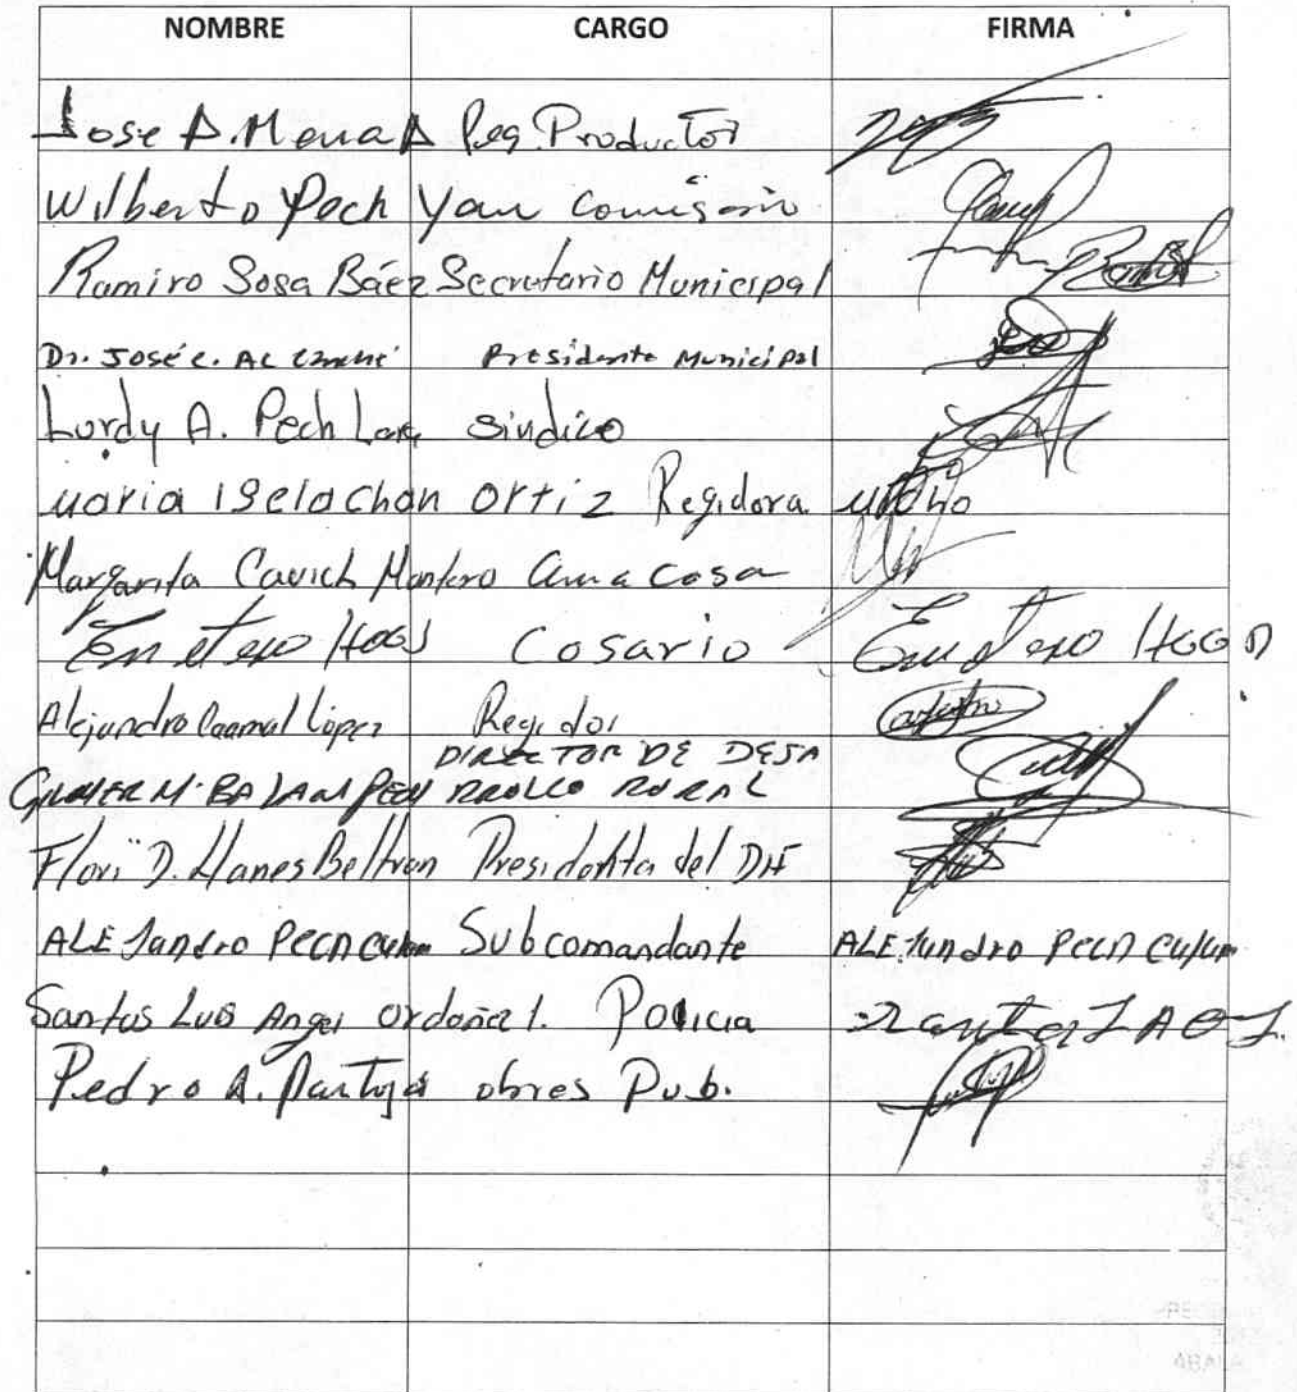 NOMBRE CARGO FIRMA
Jose A. Mena A Peq. Productor
Wilberto Pech Yam Comisario
Ramiro Sosa Báez Secretario Municipal
Dr. José C. Ac Presidente Municipal
Lurdy A. Pech Lara sindico
Maria Isela chan Ortiz Regidora
Margarita Cauich Montero Ama casa
Emeterio Cosario Emeterio
Alejandro Caamal López Regidor
DIRECTOR DE DESA
M. BALAM PECH RROLLO RURAL
D. Llanes Beltran Presidenta del DIF
ALEJandro Pech Subcomandante ALEJandro Pech
Santos Luis Angel Ordoñez l. Policia Santos L A O L.
Pedro A. Pantoja obres Pub.